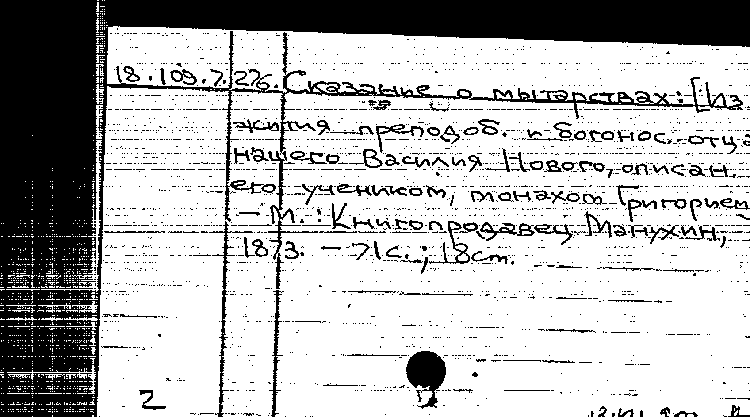 18.109.7.276. Сказание о мытарствах: [Из
жития преподоб. и богонос. отца
нашего Василия Нового, описан.
его учеником, монахом Григорием
– М.: Книгопродавец Манухин,
1873. – 71с.; 18см.
2